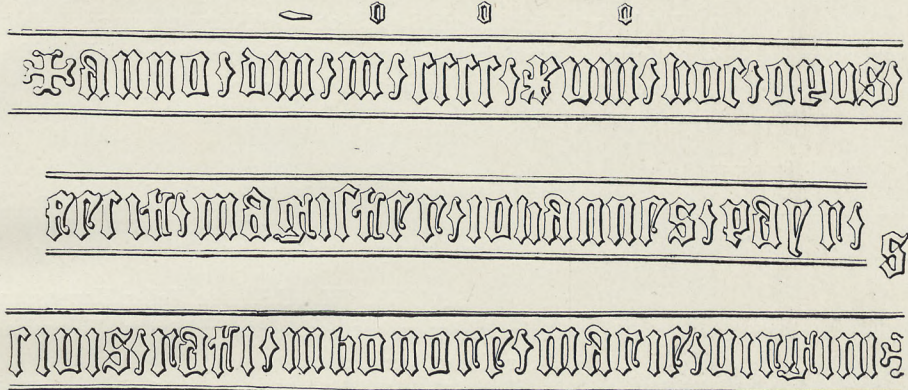 ✠ anno › dm › m › cccc › xuiii › hoc › opus ›
o o o
fecit › magister › iohannes › payr ›
s
ciuis › rati › in honore › marie › uirgini